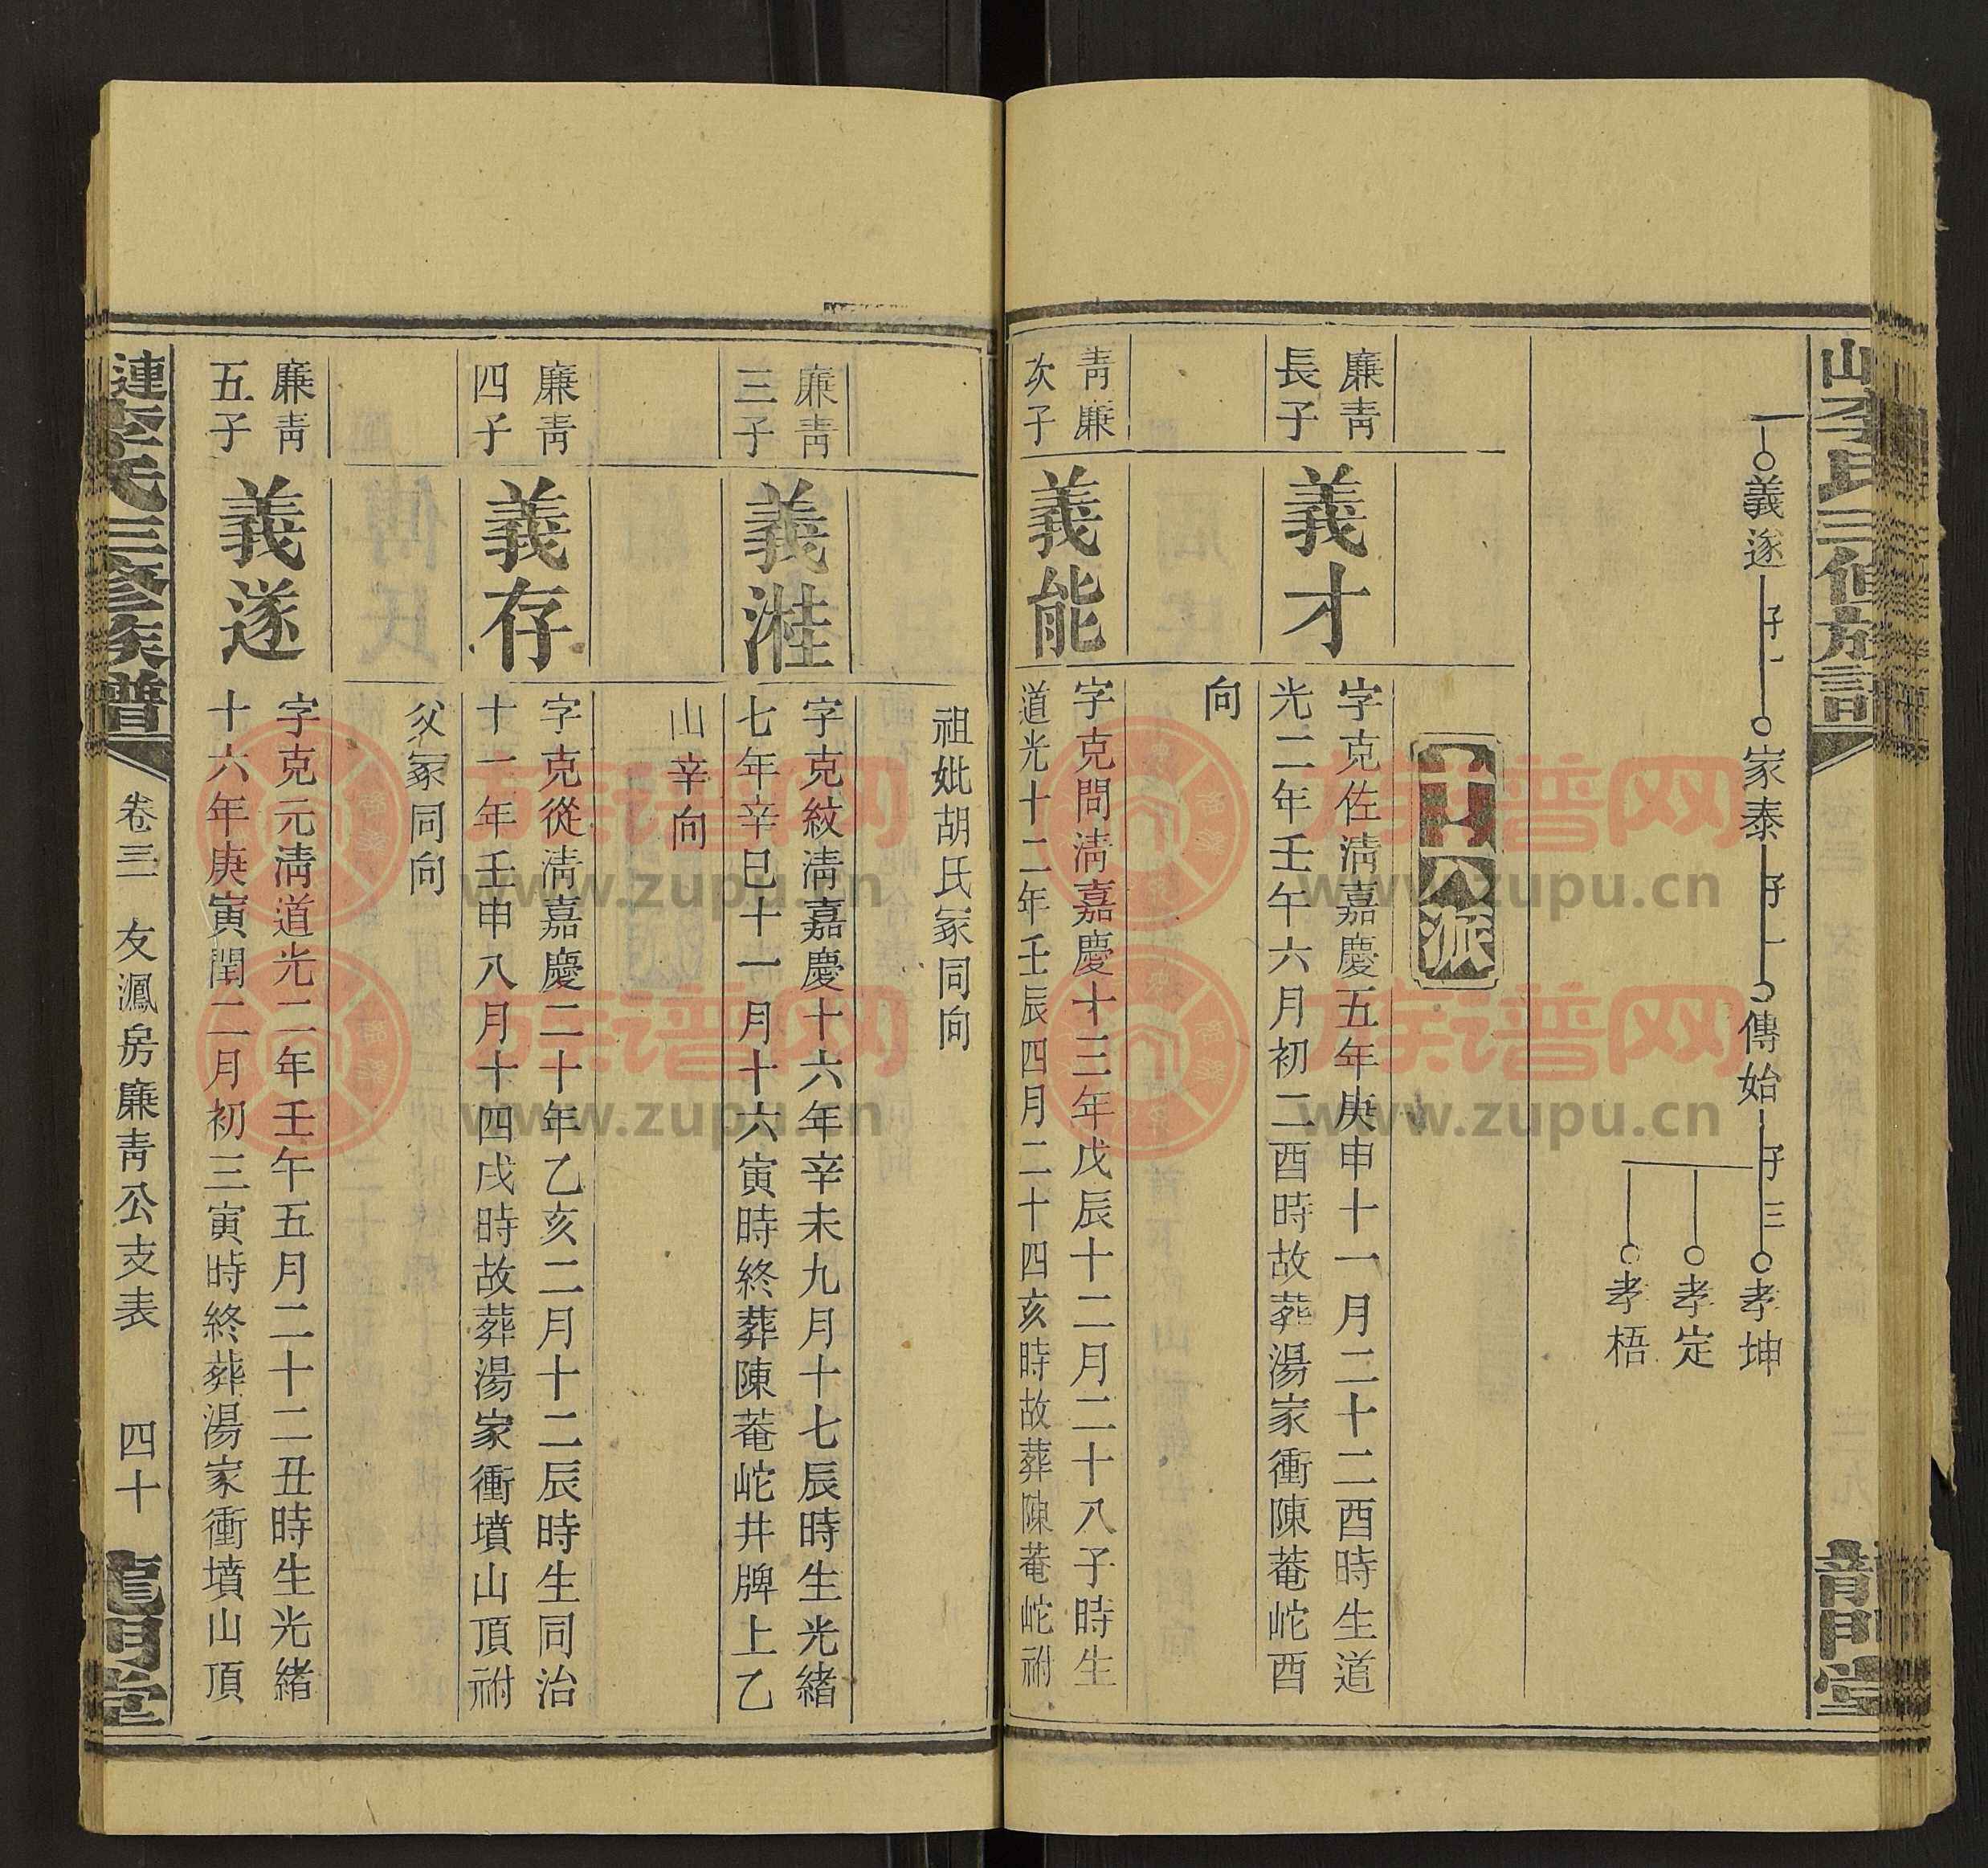 山李氏三修族譜
龍門堂
義遂
子一
家泰
子一
傳始
子三
孝坤
孝定
孝梧
公派
廉靑
長子
義才
字克佐淸嘉慶五年庚申十一月二十二酉時生道
光二年壬午六月初二酉時故葬湯家衝陳菴岮酉
向
靑廉
次子
義能
字克問淸嘉慶十三年戊辰十二月二十八子時生
道光十二年壬辰四月二十四亥時故葬陳菴岮祔
祖妣胡氏冢同向
廉靑
三子
義溎
字克紋淸嘉慶十六年辛未九月十七辰時生光緖
七年辛巳十一月十六寅時終葬陳菴岮井牌上乙
山辛向
廉靑
四子
義存
字克從淸嘉慶二十年乙亥二月十二辰時生同治
十一年壬申八月十四戌時故葬湯家衝墳山頂祔
父冢同向
廉靑
五子
義遂
字克元淸道光二年壬午五月二十二丑時生光緖
十六年庚寅閏二月初三寅時終葬湯家衝墳山頂
漣李氏三修族譜
卷三
友鳳房廉靑公支表
四十
龍門堂
族谱网
www.zupu.cn
族谱网
www.zupu.cn
族谱网
www.zupu.cn
族谱网
www.zupu.cn